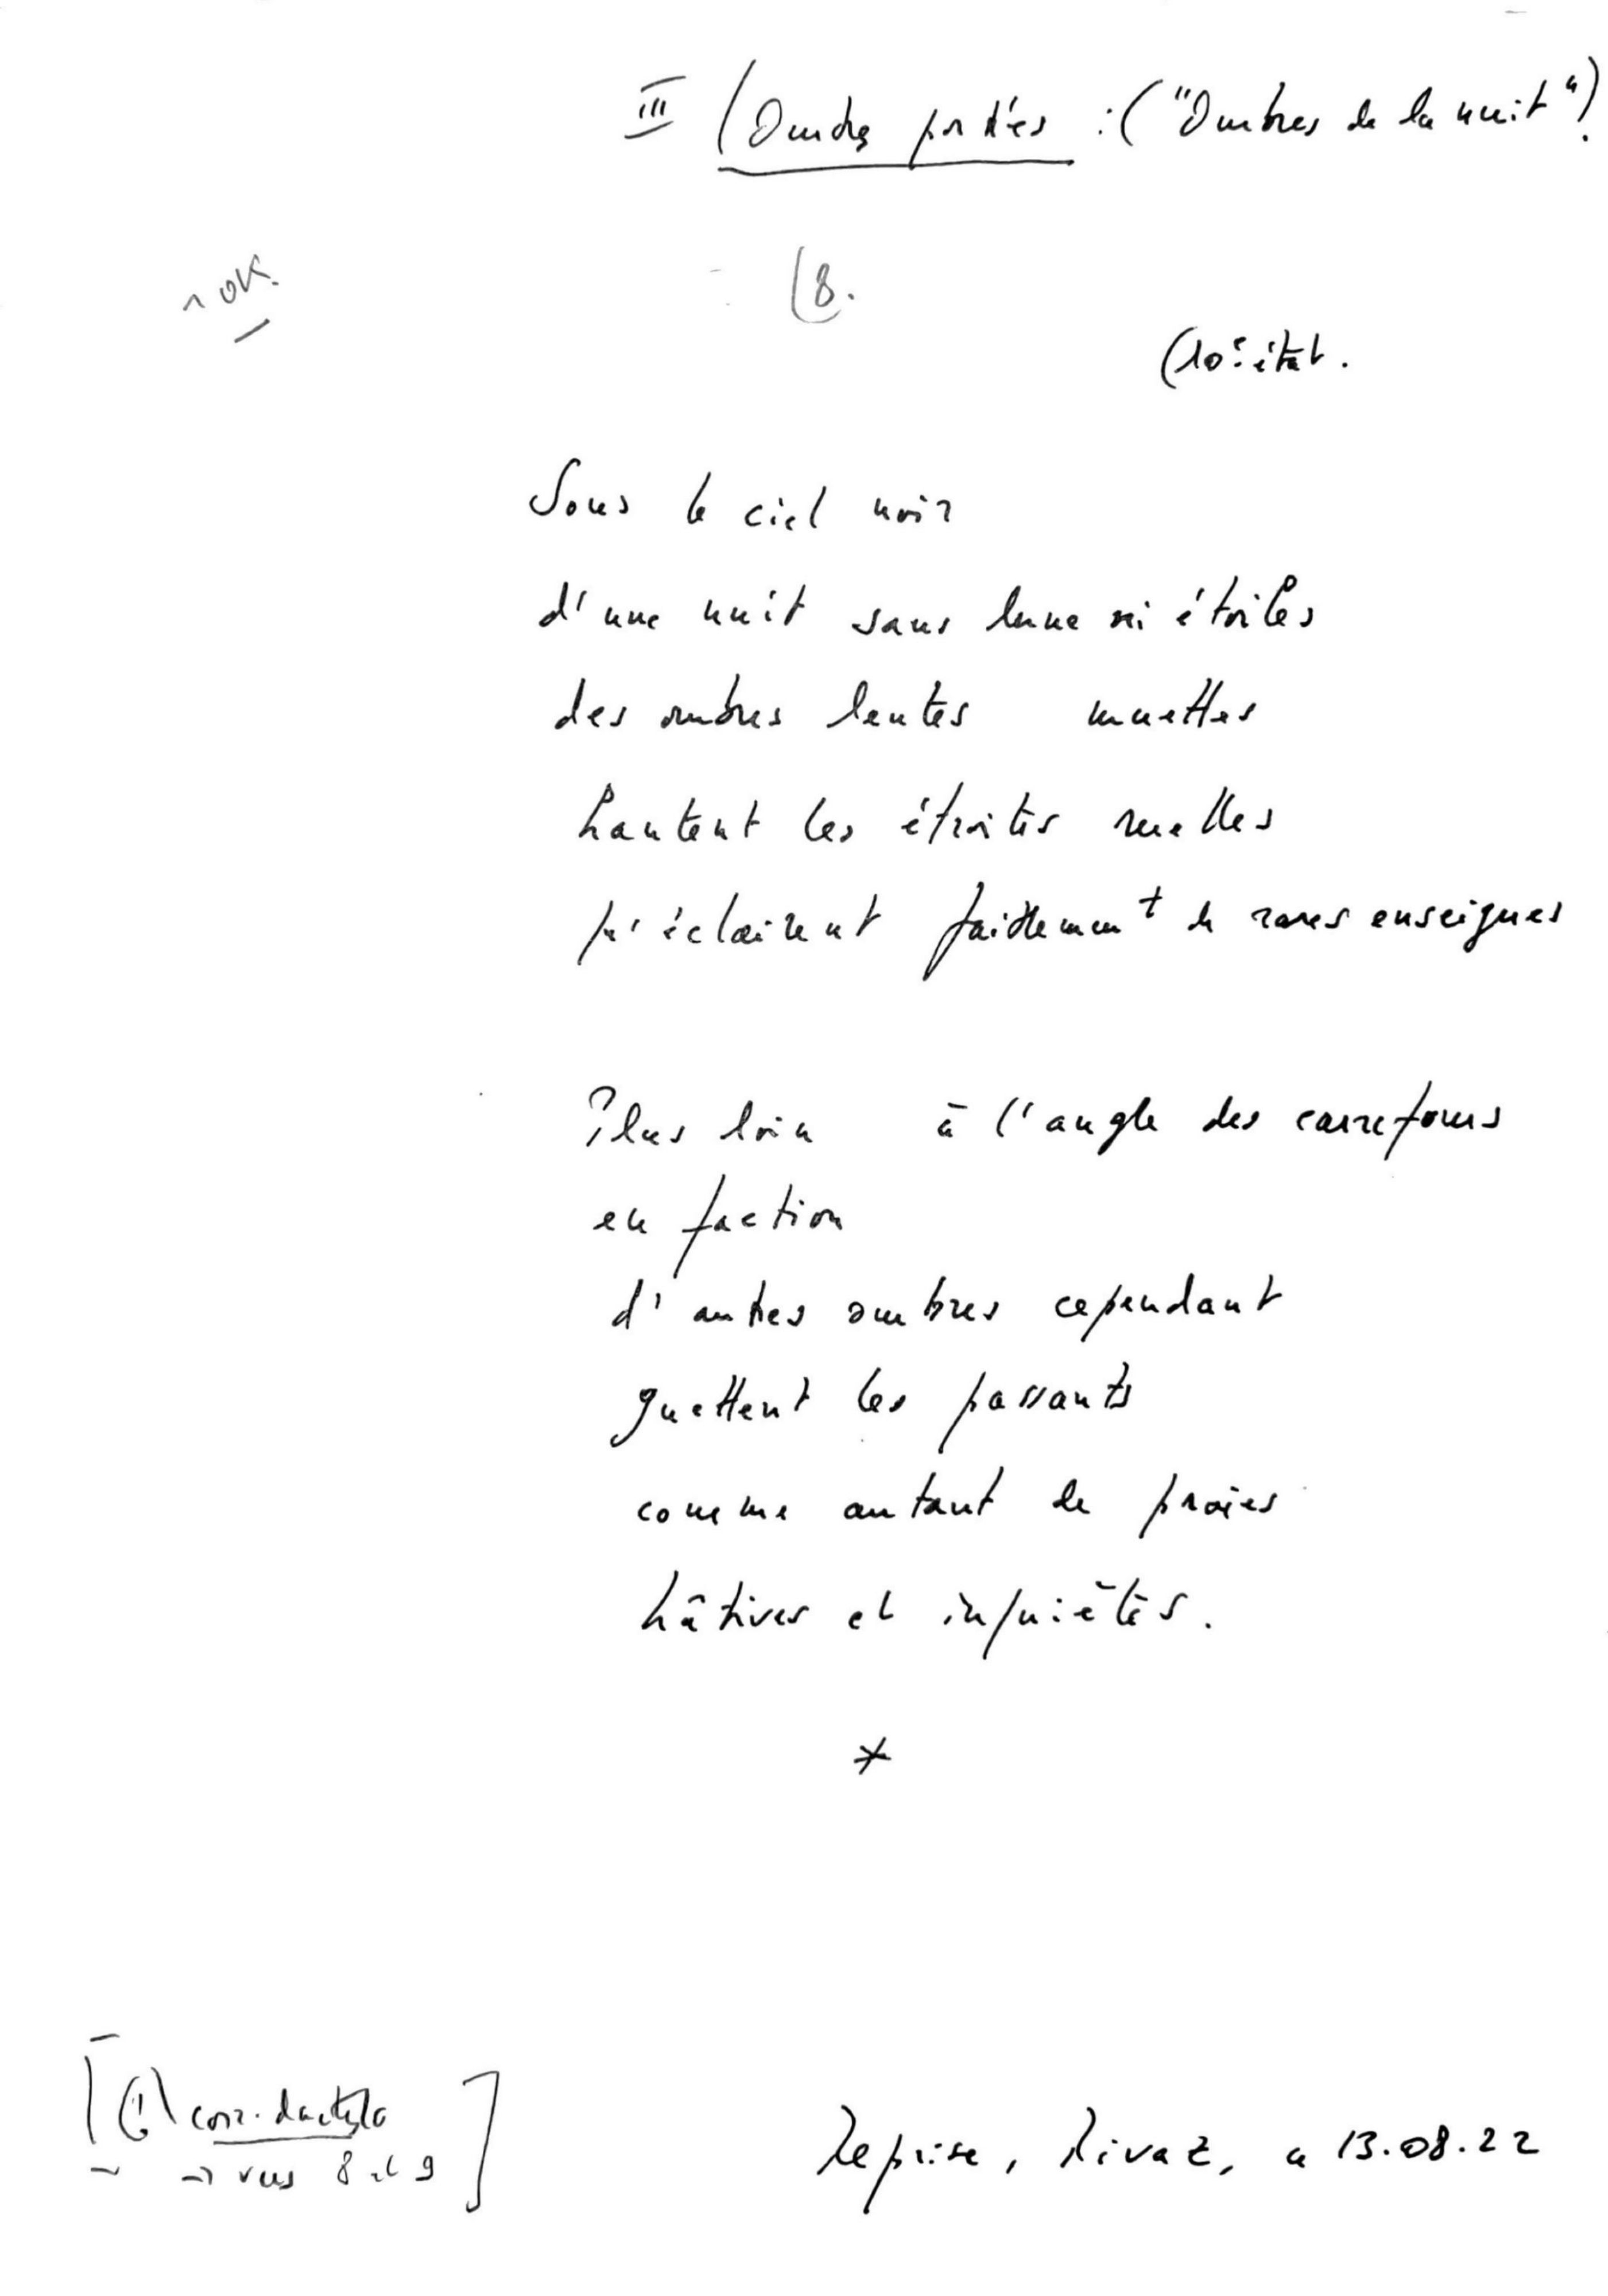 III (Ombres portées : ("Ombres de la nuit").
OK.
(8.
(10e état.
Sous le ciel noir
d'une nuit sans lune ni étoiles
des ombres lentes muettes
hantent les étroites ruelles
qu'éclairent faiblement de rares enseignes
Plus loin à l'angle des carrefours
en faction
d'autres ombres cependant
guettent les passants
comme autant de proies
hâtives et inquiètes.
*
[(!) corr. dactylo
→ vers 8 et 9]
Reprise, Rivaz, a 13.08.22